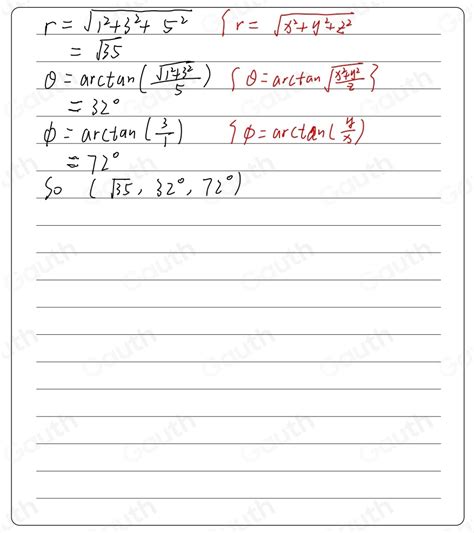 r = √(1²+3²+5²) { r = √(x²+y²+z²)
= √35
θ = arctan(√(1²+3²)/5) { θ = arctan √(x²+y²)/z }
= 32°
ϕ = arctan(3/1) { ϕ = arctan(y/x)
= 72°
So (√35, 32°, 72°)